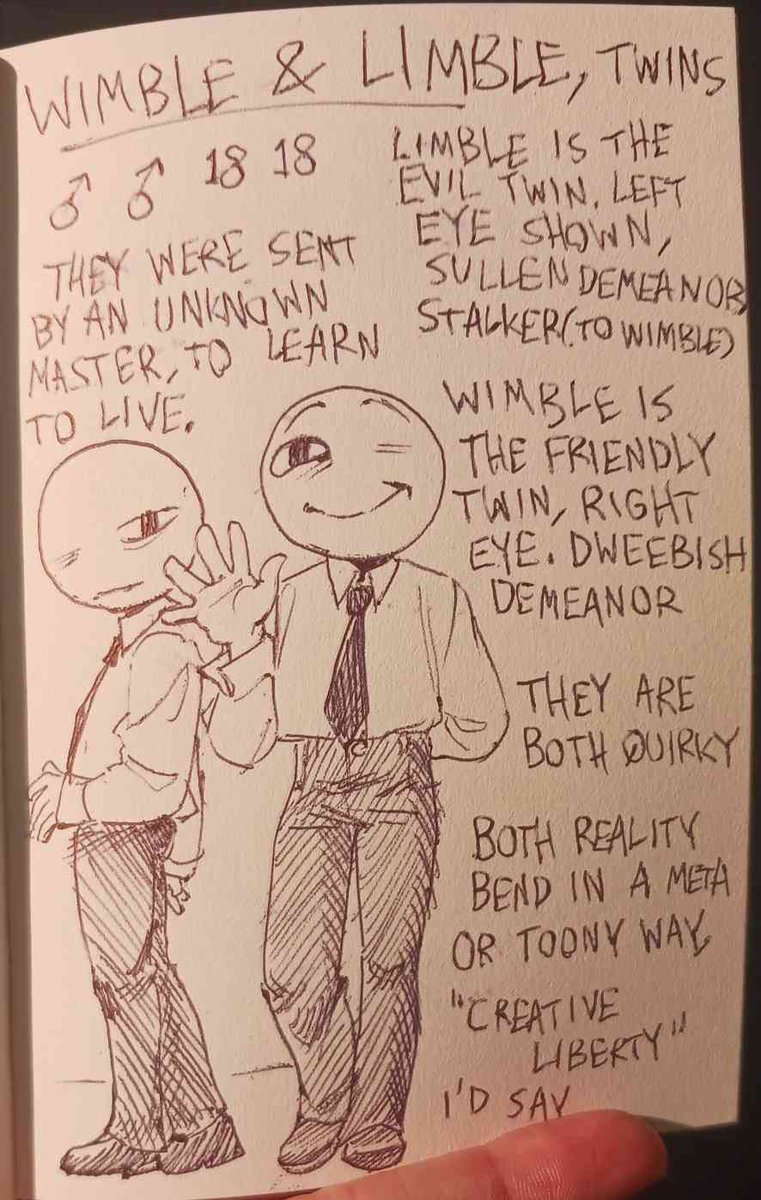 WIMBLE & LIMBLE, TWINS
♂ ♂ 18 18
THEY WERE SENT
BY AN UNKNOWN
MASTER, TO LEARN
TO LIVE.
LIMBLE IS THE
EVIL TWIN. LEFT
EYE SHOWN,
SULLEN DEMEANOR,
STALKER (TO WIMBLE)
WIMBLE IS
THE FRIENDLY
TWIN, RIGHT
EYE. DWEEBISH
DEMEANOR
THEY ARE
BOTH QUIRKY
BOTH REALITY
BEND IN A META
OR TOONY WAY,
"CREATIVE
LIBERTY"
I'D SAY